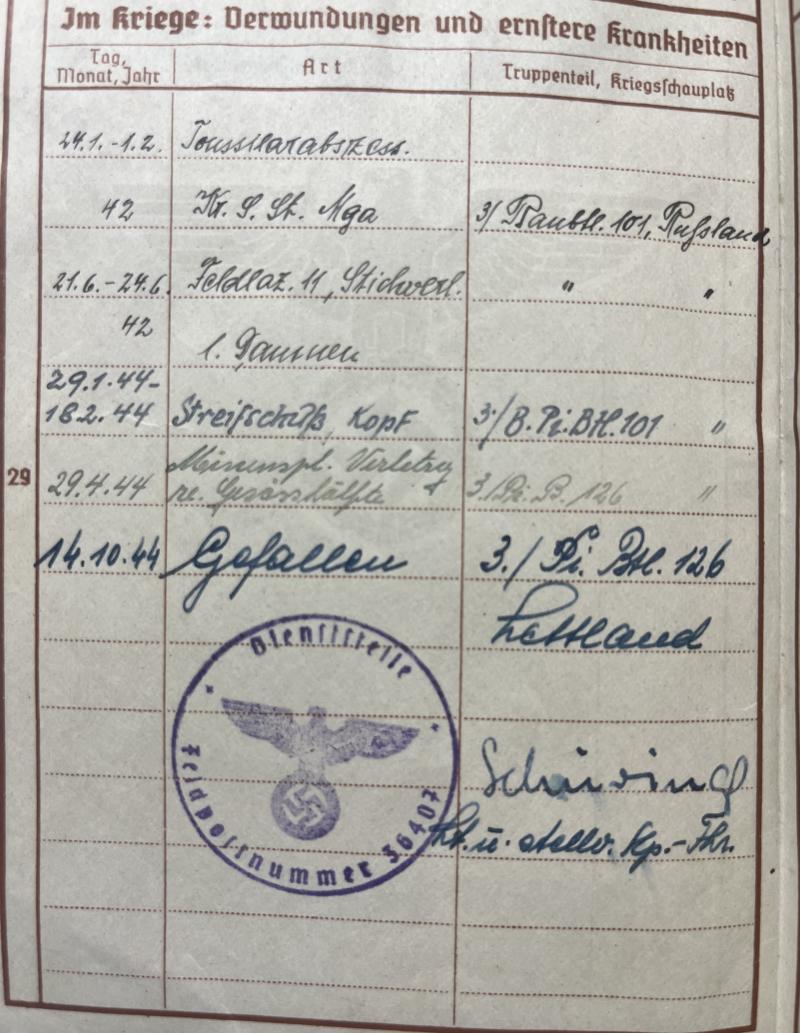 Im Kriege: Verwundungen und ernstere Krankheiten
Tag, Monat, Jahr
Art
Truppenteil, Kriegsschauplatz
24.1.-1.2. Tonsillarabszess.
42 Kr. S. St. Nga 3/ Baubtl. 101, Russland
21.6.-24.6. Feldlaz. 11, Stichverl. " "
42 l. Daumen
29.1.44-
18.2.44 Streifschuß, Kopf 3/B.Pi.Btl.101 "
Minenspl. Verletzg
29 29.4.44 re. Gesässhälfte 3./Pi. B. 126 "
14.10.44 Gefallen 3./ Pi. Btl. 126
Lettland
Dienststelle
Feldpostnummer 36407
Lt. u. stellv. Kp.-Fhr.